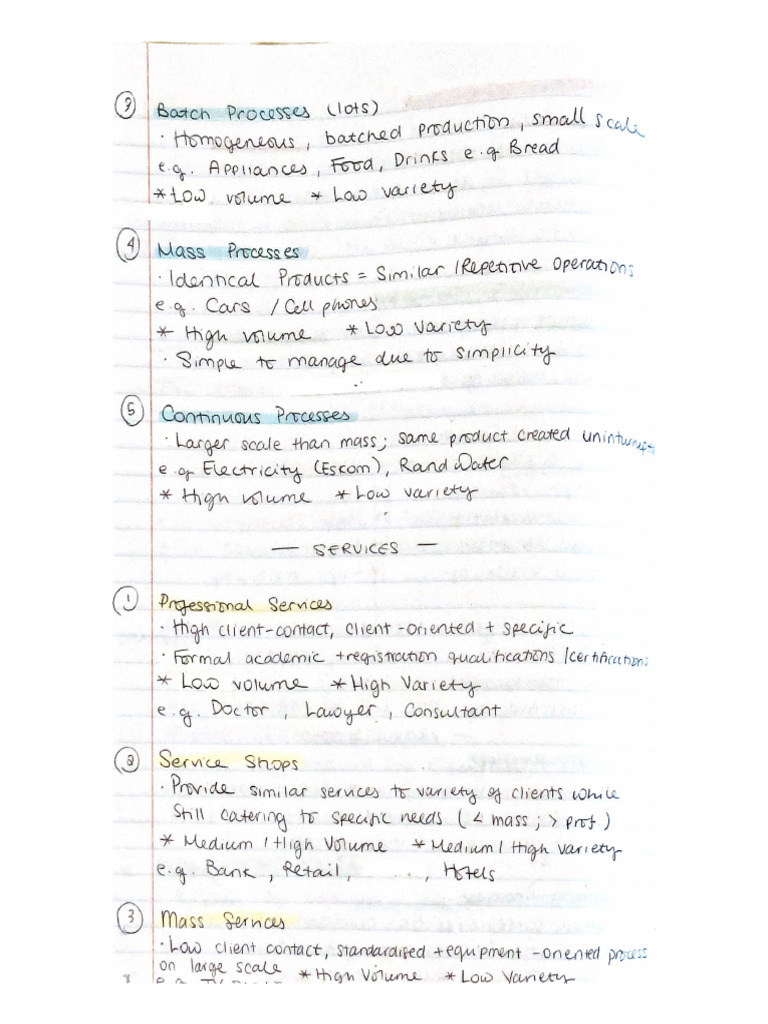 ③ Batch Processes (lots)
· Homogeneous, batched production, small scale
e.g. Appliances, Food, Drinks e.g Bread
* Low volume * Low variety
④ Mass Processes
· Identical Products = Similar / Repetitive Operations
e.g. Cars / Cell phones
* High volume * Low Variety
· Simple to manage due to simplicity
⑤ Continuous Processes
· Larger scale than mass; same product created
e.g Electricity (Eskom), Rand Water
* High volume * Low variety
— SERVICES —
① Professional Services
· High client-contact, client-oriented + specific
· Formal academic + registration qualifications / certifications
* Low volume * High Variety
e.g. Doctor, Lawyer, Consultant
② Service Shops
· Provide similar services to variety of clients while
still catering to specific needs (< mass; > prof)
* Medium / High Volume * Medium / High variety
e.g. Bank, Retail, ..., Hotels
③ Mass Services
· Low client contact, standardised + equipment-oriented process
on large scale * High Volume * Low Variety